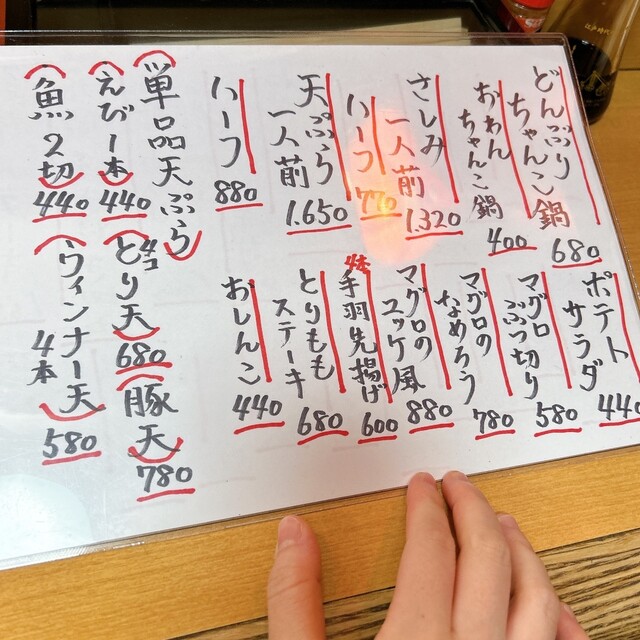 どんぶり
ちゃんこ鍋
680
おわん
ちゃんこ鍋
400
さしみ
一人前
1.320
ハーフ
770
天ぷら
一人前
1.650
ハーフ
880
ポテト
サラダ
440
マグロ
ぶつ切り
580
マグロの
なめろう
780
マグロの
ユッケ風
880
手羽先揚げ
4本
600
とりもも
ステーキ
680
おしんこ
440
単品天ぷら
えび1本
440
魚2切
440
とり天
4コ
680
豚天
780
ウィンナー天
4本
580